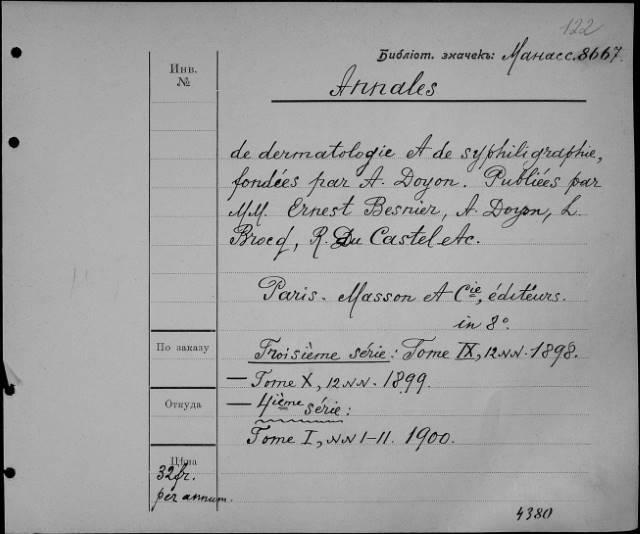 122
Библіот. значекъ: Манасс. 8667.
Инв.
№
Annales
de dermatologie et de syphiligraphie,
fondées par A. Doyon. Publiées par
MM. Ernest Besnier, A. Doyon, L.
Brocq, R. Du Castel etc.
Paris. Masson et Cie, éditeurs.
in 8°.
По заказу
Troisième série: Tome IX, 12 NN. 1898.
— Tome X, 12 NN. 1899.
Откуда
— 4ième série:
Tome I, NN 1-11. 1900.
Цѣна
32 fr.
per annum.
4380